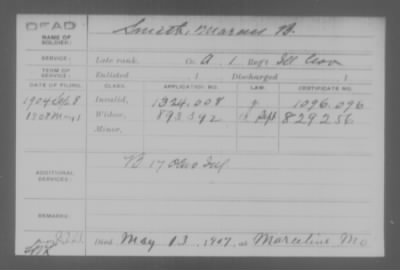 DEAD
NAME OF SOLDIER: Smith, Marcus B.
SERVICE: Late rank, Co. A, 1 Reg't Ill Cav
TERM OF SERVICE: Enlisted , 1 Discharged , 1
DATE OF FILING. CLASS. APPLICATION NO. LAW. CERTIFICATE NO.
1904 28 Invalid, 1324.008 g 1096.096
1908 May 1 Widow, 893392 829256
Minor,
ADDITIONAL SERVICES: 17 Inf
REMARKS:
Died May 13, 1907, at Marceline Mo